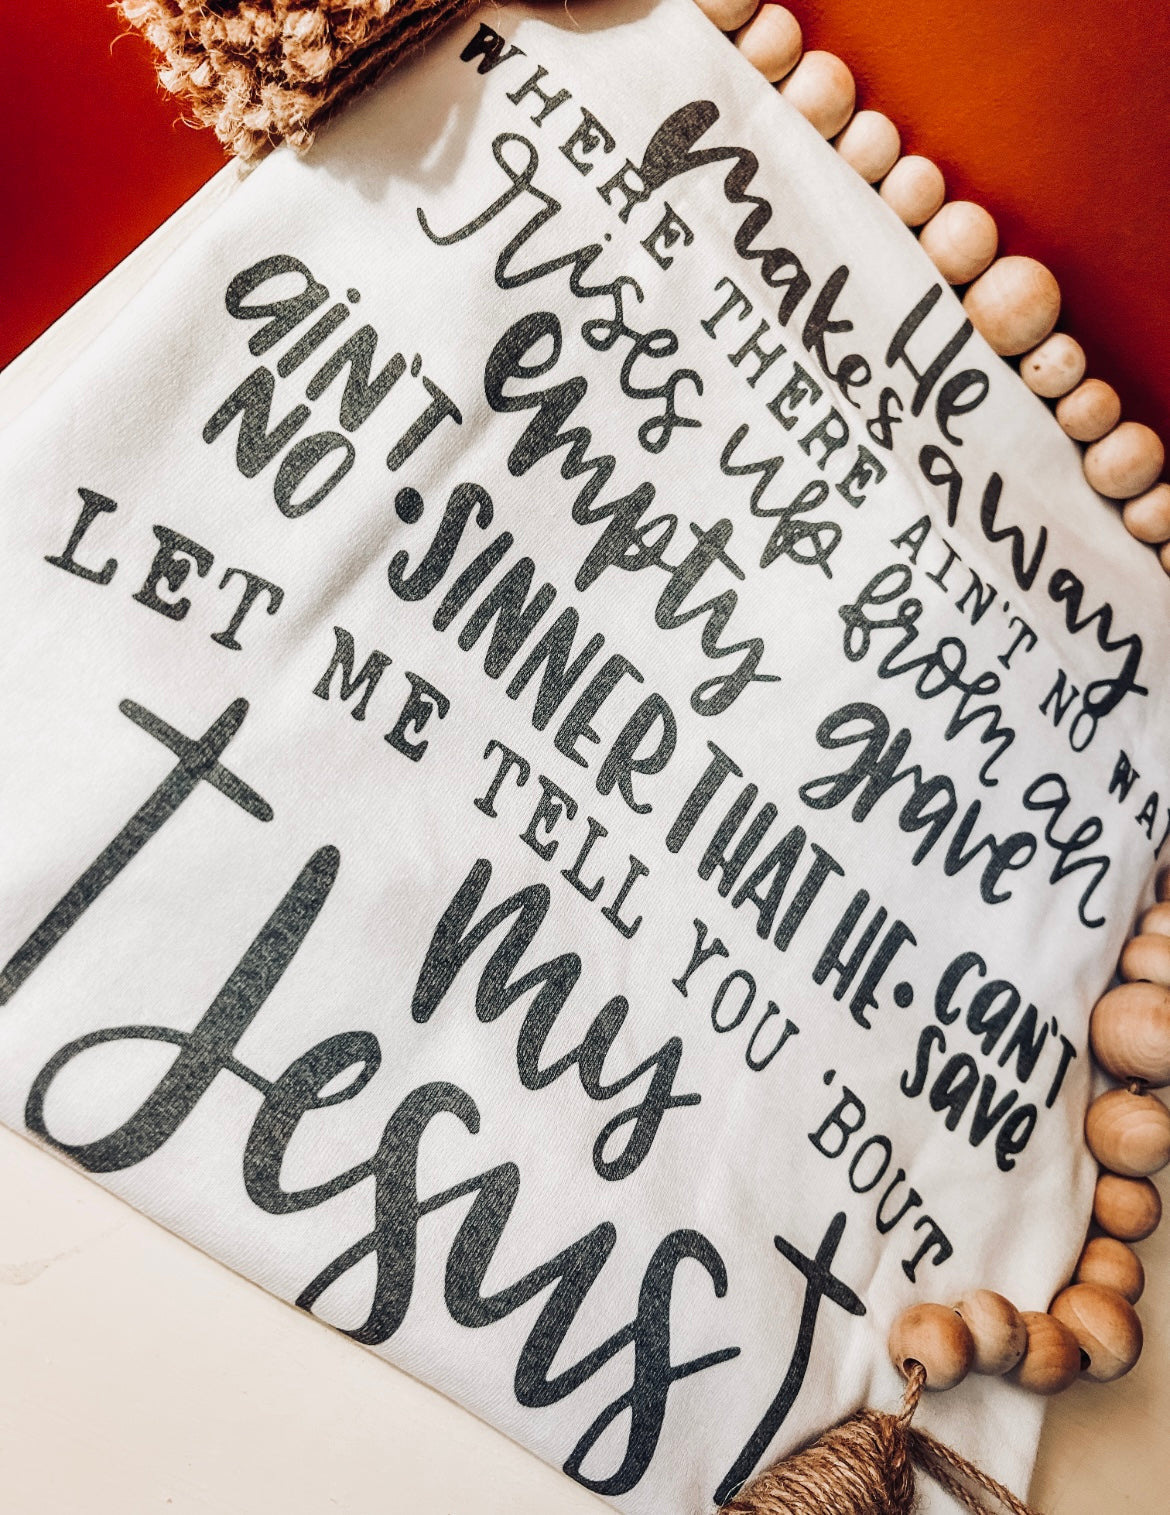 He
makes a way
WHERE THERE AIN'T NO WA
rises up from an
empty grave
ain't
NO
•SINNER THAT HE•
can't
save
LET ME TELL YOU 'BOUT
my
Jesus